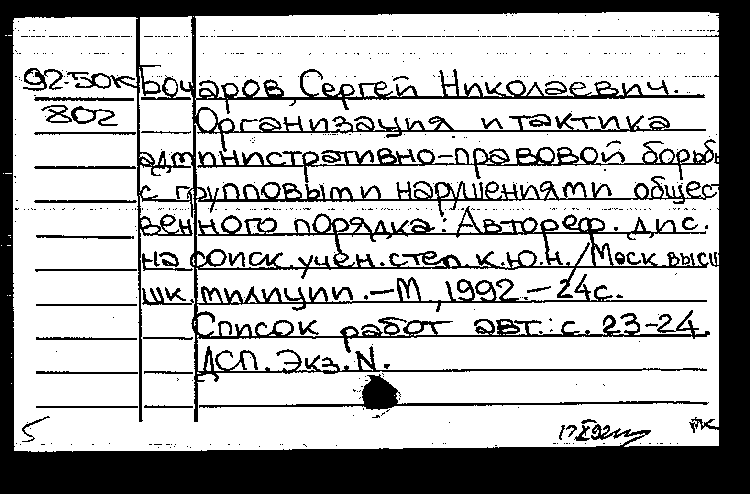 92-50к Бочаров, Сергей Николаевич.
802 Организация и тактика
административно-правовой борьбы
с групповыми нарушениями общест-
венного порядка: Автореф. дис.
на соиск. учен. степ. к.ю.н. / Моск. высш
шк. милиции. – М., 1992. – 24 с.
Список работ авт.: с. 23-24.
ДСП. Экз. N.
5